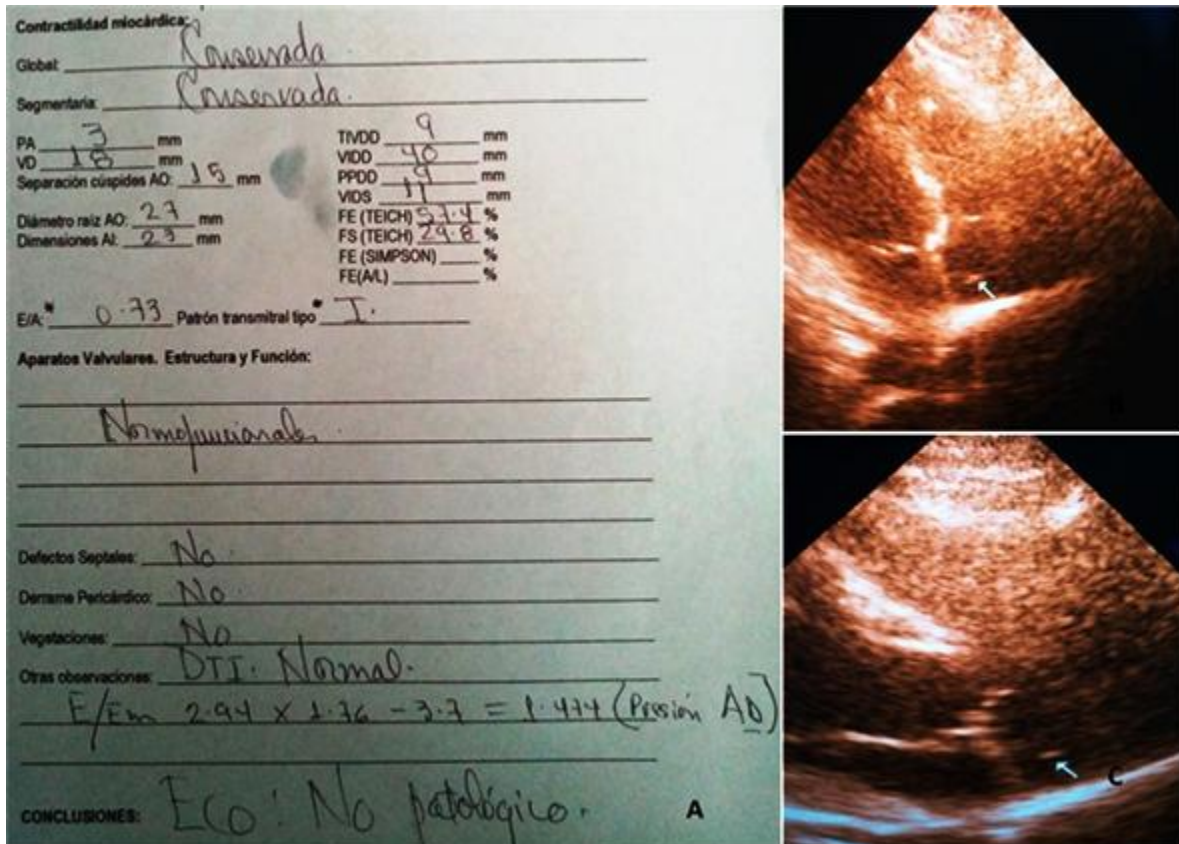 Contractilidad miocárdica:
Global: Conservada.
Segmentaria: Conservada.
PA 3 mm
VD 18 mm
Separación cúspides AO: 15 mm
Diámetro raiz AO: 27 mm
Dimensiones AI: 23 mm
TIVDD 9 mm
VIDD 40 mm
PPDD 9 mm
VIDS 11 mm
FE (TEICH) 57.4 %
FS (TEICH) 29.8 %
FE (SIMPSON) %
FE(A/L) %
E/A:* 0.73 Patrón transmitral tipo* I.
Aparatos Valvulares. Estructura y Función:
Normofuncionales.
Defectos Septales: No.
Derrame Pericárdico: No.
Vegetaciones: No
Otras observaciones: DTI. Normal.
E/Em 2.94 x 1.76 - 3.7 = 1.474 (Presión AD)
CONCLUSIONES: Eco: No patológico.
A
C